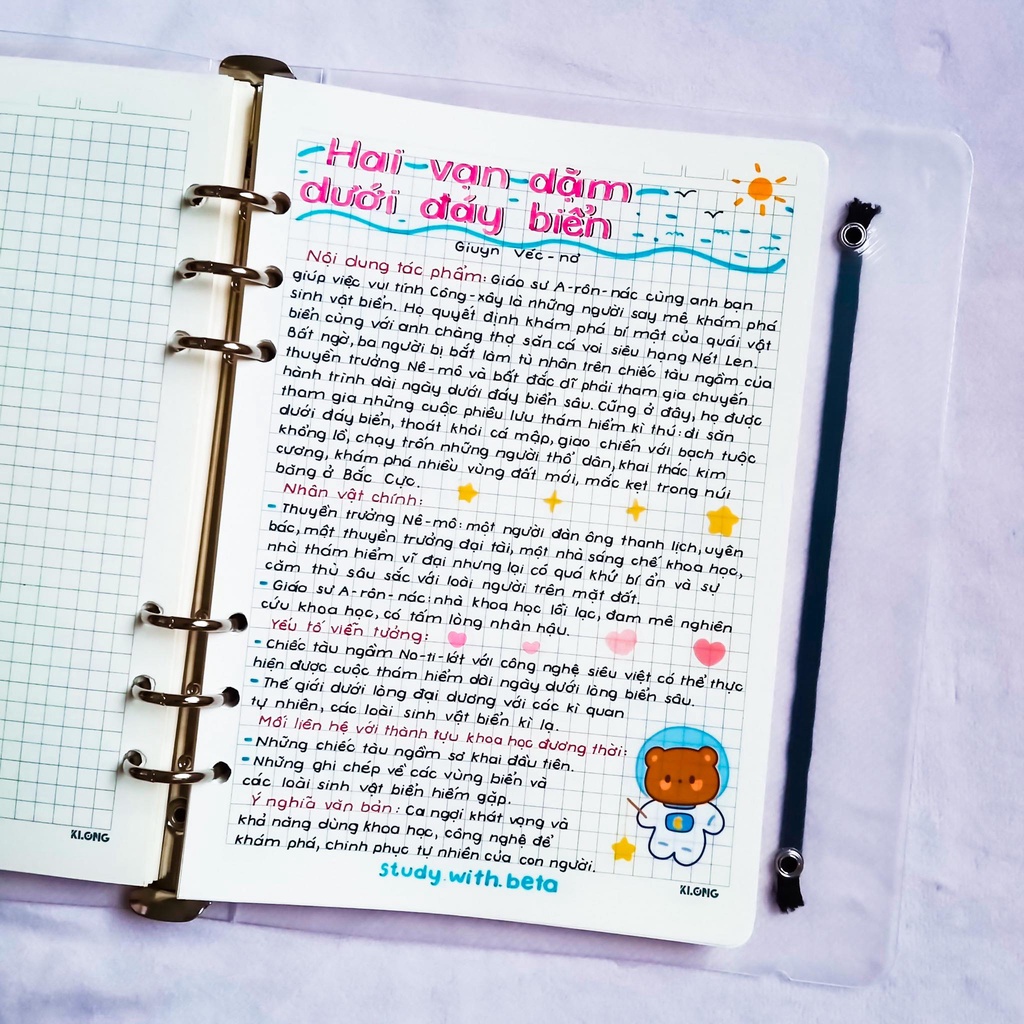 Hai vạn dặm
dưới đáy biển
Giuyn Véc-nơ
Nội dung tác phẩm: Giáo sư A-rôn-nác cùng anh bạn
giúp việc vui tính Công-xây là những người say mê khám phá
sinh vật biển. Họ quyết định khám phá bí mật của quái vật
biển cùng với anh chàng thợ săn cá voi siêu hạng Nét Len.
Bất ngờ, ba người bị bắt làm tù nhân trên chiếc tàu ngầm của
thuyền trưởng Nê-mô và bất đắc dĩ phải tham gia chuyến
hành trình dài ngày dưới đáy biển sâu. Cũng ở đây, họ được
tham gia những cuộc phiêu lưu thám hiểm kì thú: đi săn
dưới đáy biển, thoát khỏi cá mập, giao chiến với bạch tuộc
khổng lồ, chạy trốn những người thổ dân, khai thác kim
cương, khám phá nhiều vùng đất mới, mắc kẹt trong núi
băng ở Bắc Cực.
Nhân vật chính:
- Thuyền trưởng Nê-mô: một người đàn ông thanh lịch, uyên
bác, một thuyền trưởng đại tài, một nhà sáng chế khoa học,
nhà thám hiểm vĩ đại nhưng lại có quá khứ bí ẩn và sự
căm thù sâu sắc với loài người trên mặt đất.
- Giáo sư A-rôn-nác: nhà khoa học lỗi lạc, đam mê nghiên
cứu khoa học, có tấm lòng nhân hậu.
Yếu tố viễn tưởng:
- Chiếc tàu ngầm No-ti-lớt với công nghệ siêu việt có thể thực
hiện được cuộc thám hiểm dài ngày dưới lòng biển sâu.
- Thế giới dưới lòng đại dương với các kì quan
tự nhiên, các loài sinh vật biển kì lạ.
Mối liên hệ với thành tựu khoa học đương thời:
- Những chiếc tàu ngầm sơ khai đầu tiên.
- Những ghi chép về các vùng biển và
các loài sinh vật biển hiếm gặp.
Ý nghĩa văn bản: Ca ngợi khát vọng và
khả năng dùng khoa học, công nghệ để
khám phá, chinh phục tự nhiên của con người.
study.with.beta
KLONG
KLONG